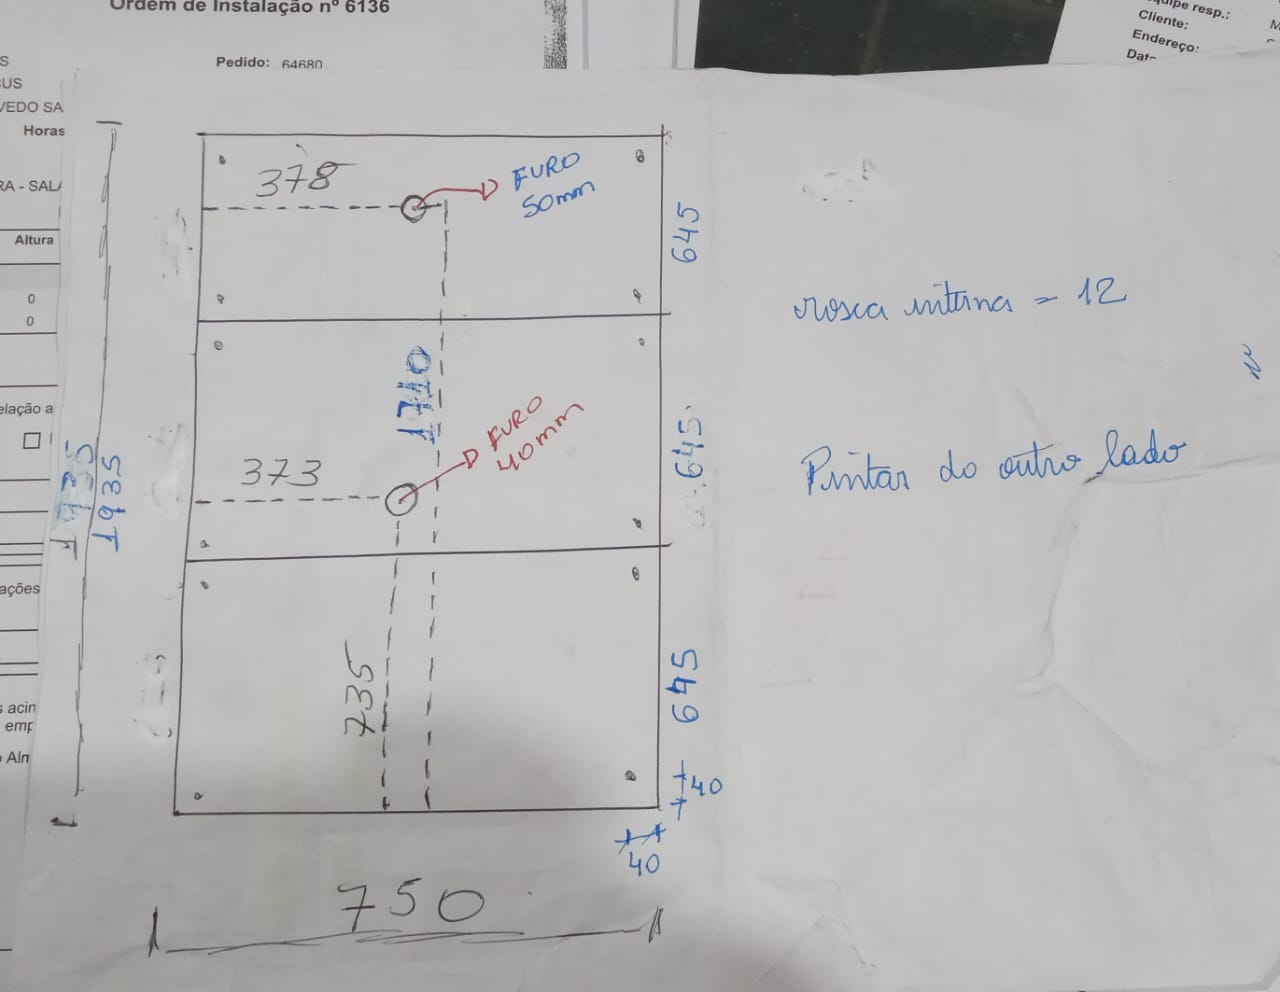 Ordem de Instalação nº 6136
Pedido: 64680
S
SUS
VEDO SA
Horas
RA - SALA
Altura
0
0
elação a
ações
s acin
emp
Alm
quipe resp.:
Cliente:
Endereço:
Data
378
FURO
50mm
645
1710
FURO
40mm
373
645
1935
1935
735
645
40
40
750
rosca interna = 12
Pintar do outro lado